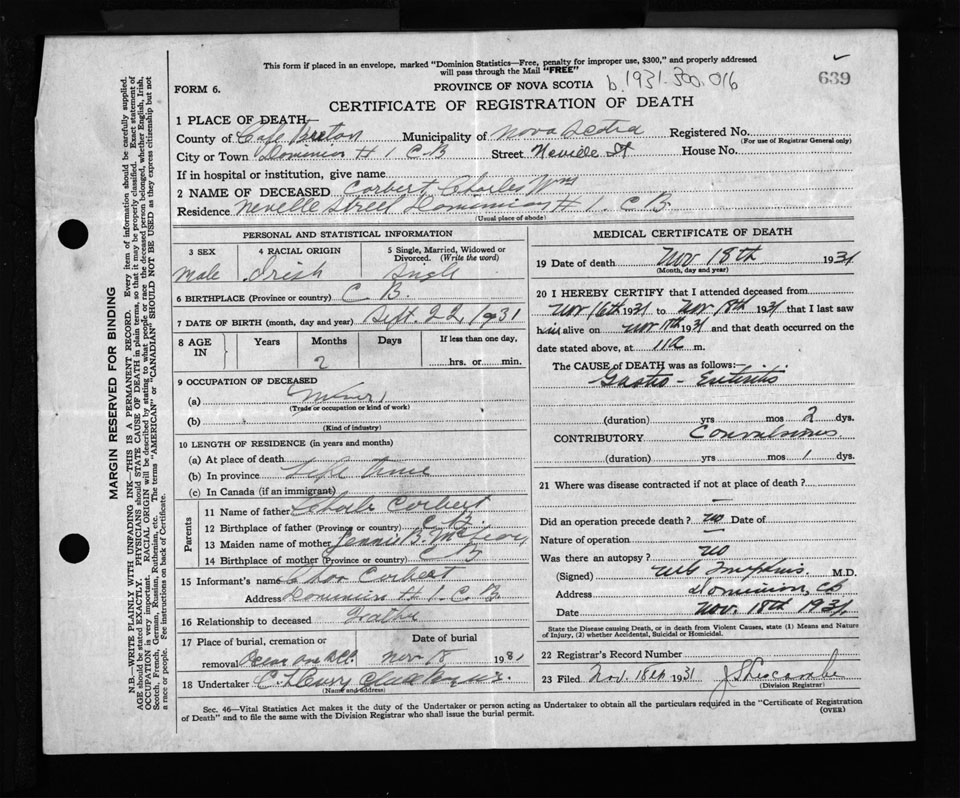 This form if placed in an envelope, marked "Dominion Statistics—Free, penalty for improper use, $300," and properly addressed
will pass through the Mail "FREE"
639
FORM 6.
PROVINCE OF NOVA SCOTIA b.1931.300.016
CERTIFICATE OF REGISTRATION OF DEATH
1 PLACE OF DEATH
County of Cape Breton Municipality of Nova Scotia Registered No.
(For use of Registrar General only)
City or Town Dominion # 1 C.B Street Neville St House No.
If in hospital or institution, give name
2 NAME OF DECEASED Corbert Charles Wm
Residence Neville Street Dominion # 1. C B.
(Usual place of abode)
PERSONAL AND STATISTICAL INFORMATION
3 SEX 4 RACIAL ORIGIN 5 Single, Married, Widowed or
Divorced. (Write the word)
Male Irish Single
6 BIRTHPLACE (Province or country) C B.
7 DATE OF BIRTH (month, day and year) Sept. 22, 1931
8 AGE IN Years Months Days If less than one day,
2 hrs. or min.
9 OCCUPATION OF DECEASED
(a)
(Trade or occupation or kind of work)
(b)
(Kind of industry)
10 LENGTH OF RESIDENCE (in years and months)
(a) At place of death
(b) In province Life time
(c) In Canada (if an immigrant)
Parents
11 Name of father Corbert
12 Birthplace of father (Province or country) C B.
13 Maiden name of mother Jennie B.
14 Birthplace of mother (Province or country) C B
15 Informant's name Corbert
Address Dominion # 1. C. B.
16 Relationship to deceased
17 Place of burial, cremation or Date of burial
removal Nov 18 1931
18 Undertaker C. Henry
(Name and address)
MEDICAL CERTIFICATE OF DEATH
19 Date of death Nov 18th 1931
(Month, day and year)
20 I HEREBY CERTIFY that I attended deceased from
Nov 16th 1931 to Nov. 18th 1931 that I last saw
him alive on Nov 17th 1931 and that death occurred on the
date stated above, at 11 a m.
The CAUSE OF DEATH was as follows:—
Gastro-Enteritis
(duration) yrs mos 2 dys.
CONTRIBUTORY Convulsions
(duration) yrs mos 1 dys.
21 Where was disease contracted if not at place of death?
—
Did an operation precede death? no Date of
Nature of operation —
Was there an autopsy? no
(Signed) M.D.
Address Dominion, CB
Date Nov. 18th 1931
State the Disease causing Death, or in death from Violent Causes, state (1) Means and Nature
of Injury, (2) whether Accidental, Suicidal or Homicidal.
22 Registrar's Record Number
23 Filed Nov. 18th 1931
(Division Registrar)
Sec. 46—Vital Statistics Act makes it the duty of the Undertaker or person acting as Undertaker to obtain all the particulars required in the "Certificate of Registration
of Death" and to file the same with the Division Registrar who shall issue the burial permit. (OVER)
MARGIN RESERVED FOR BINDING
N.B.—WRITE PLAINLY WITH UNFADING INK—THIS IS A PERMANENT RECORD. Every item of information should be carefully supplied.
AGE should be stated EXACTLY. PHYSICIANS should STATE CAUSE OF DEATH in plain terms, so that it may be properly classified. Exact statement of
OCCUPATION is very important. RACIAL ORIGIN will be described by stating to what people or race the deceased person belonged, whether English, Irish,
Scotch, French, German, Russian, Ruthenian, etc. The terms "AMERICAN" or "CANADIAN" SHOULD NOT BE USED as they express citizenship but not
a race or people. See instructions on back of Certificate.